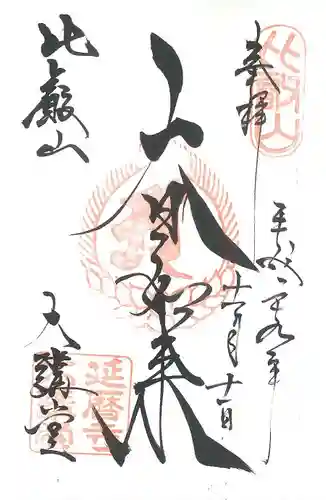 比叡山
奉拝
平成二十九年
十一月十一日
大日如来
比叡山
大講堂
延暦寺